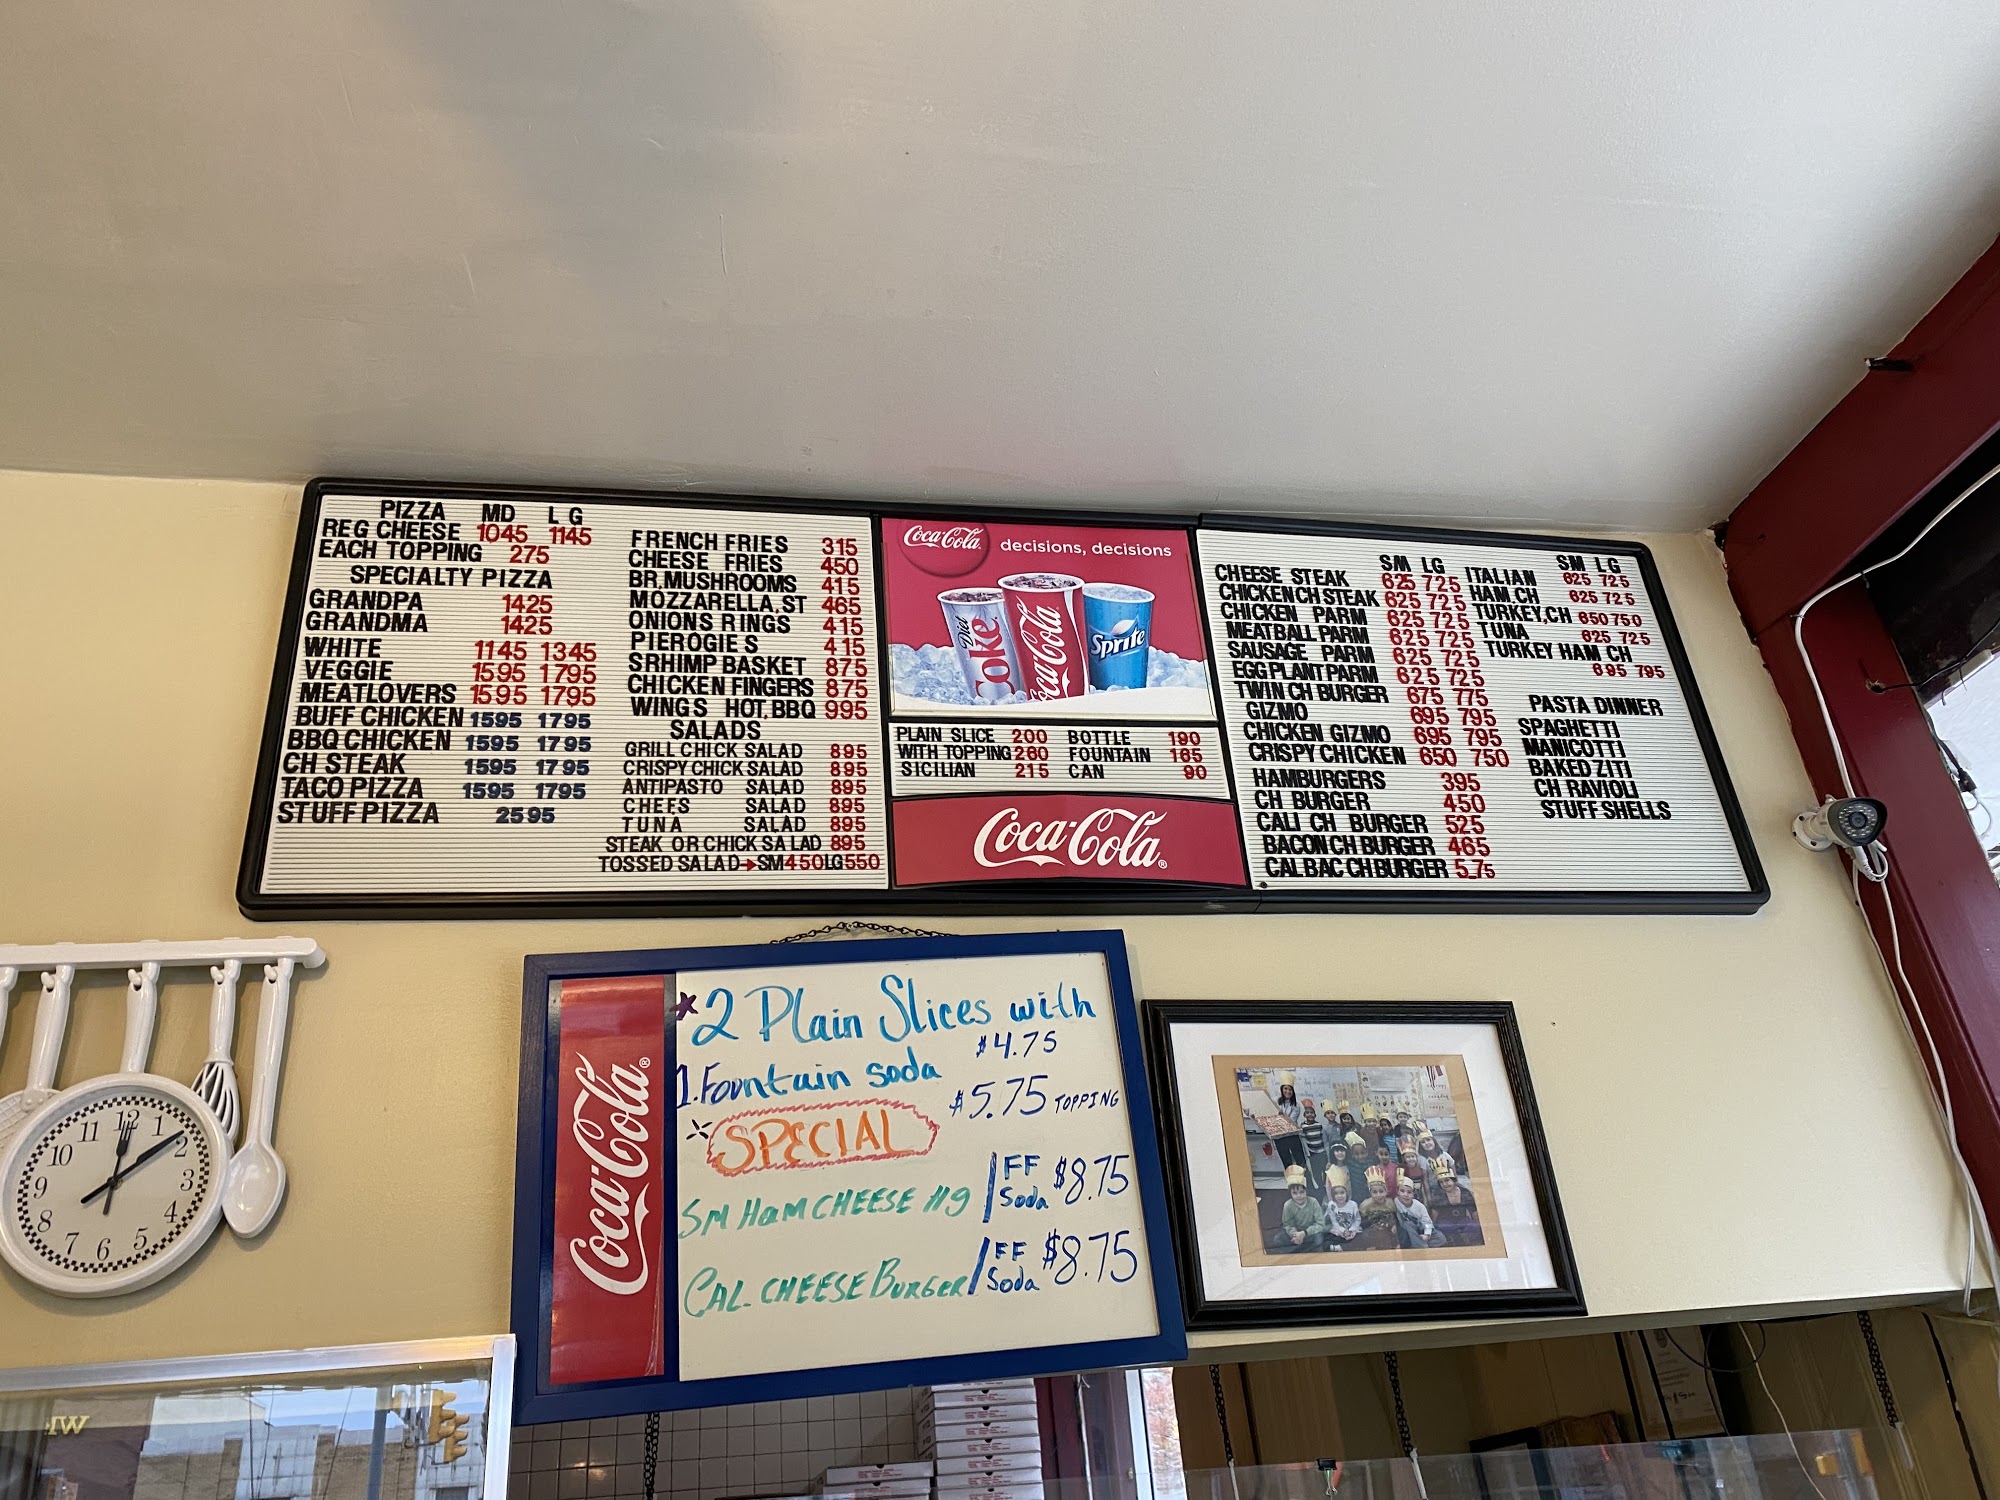 PIZZA MD LG
REG CHEESE 1045 1145
EACH TOPPING 275
SPECIALTY PIZZA
GRANDPA 1425
GRANDMA 1425
WHITE 1145 1345
VEGGIE 1595 1795
MEATLOVERS 1595 1795
BUFF CHICKEN 1595 1795
BBQ CHICKEN 1595 1795
CH STEAK 1595 1795
TACO PIZZA 1595 1795
STUFF PIZZA 2595
FRENCH FRIES 315
CHEESE FRIES 450
BR.MUSHROOMS 415
MOZZARELLA.ST 465
ONIONS RINGS 415
PIEROGIES 415
SRHIMP BASKET 875
CHICKEN FINGERS 875
WINGS HOT.BBQ 995
SALADS
GRILL CHICK SALAD 895
CRISPY CHICK SALAD 895
ANTIPASTO SALAD 895
CHEFS SALAD 895
TUNA SALAD 895
STEAK OR CHICK SALAD 895
TOSSED SALAD SM450LG550
Coca-Cola decisions, decisions
Diet Coke
Coca-Cola
Sprite
PLAIN SLICE 200 BOTTLE 190
WITH TOPPING 260 FOUNTAIN 165
SICILIAN 215 CAN 90
Coca-Cola
SM LG
CHEESE STEAK 625 725
CHICKEN CH STEAK 625 725
CHICKEN PARM 625 725
MEATBALL PARM 625 725
SAUSAGE PARM 625 725
EGG PLANT PARM 625 725
TWIN CH BURGER 675 775
GIZMO 695 795
CHICKEN GIZMO 695 795
CRISPY CHICKEN 650 750
HAMBURGERS 395
CH BURGER 450
CALI CH BURGER 525
BACON CH BURGER 465
CAL BAC CH BURGER 5.75
SM LG
ITALIAN 625 725
HAM.CH 625 725
TURKEY,CH 650 750
TUNA 625 725
TURKEY HAM CH
695 795
PASTA DINNER
SPAGHETTI
MANICOTTI
BAKED ZITI
CH RAVIOLI
STUFF SHELLS
Coca-Cola
*2 Plain Slices with
1. Fountain soda $4.75
$5.75 TOPPING
SPECIAL
SM HAM CHEESE H9 / FF Soda $8.75
CAL. CHEESE BURGER / FF Soda $8.75
12
1
2
3
4
5
6
7
8
9
10
11